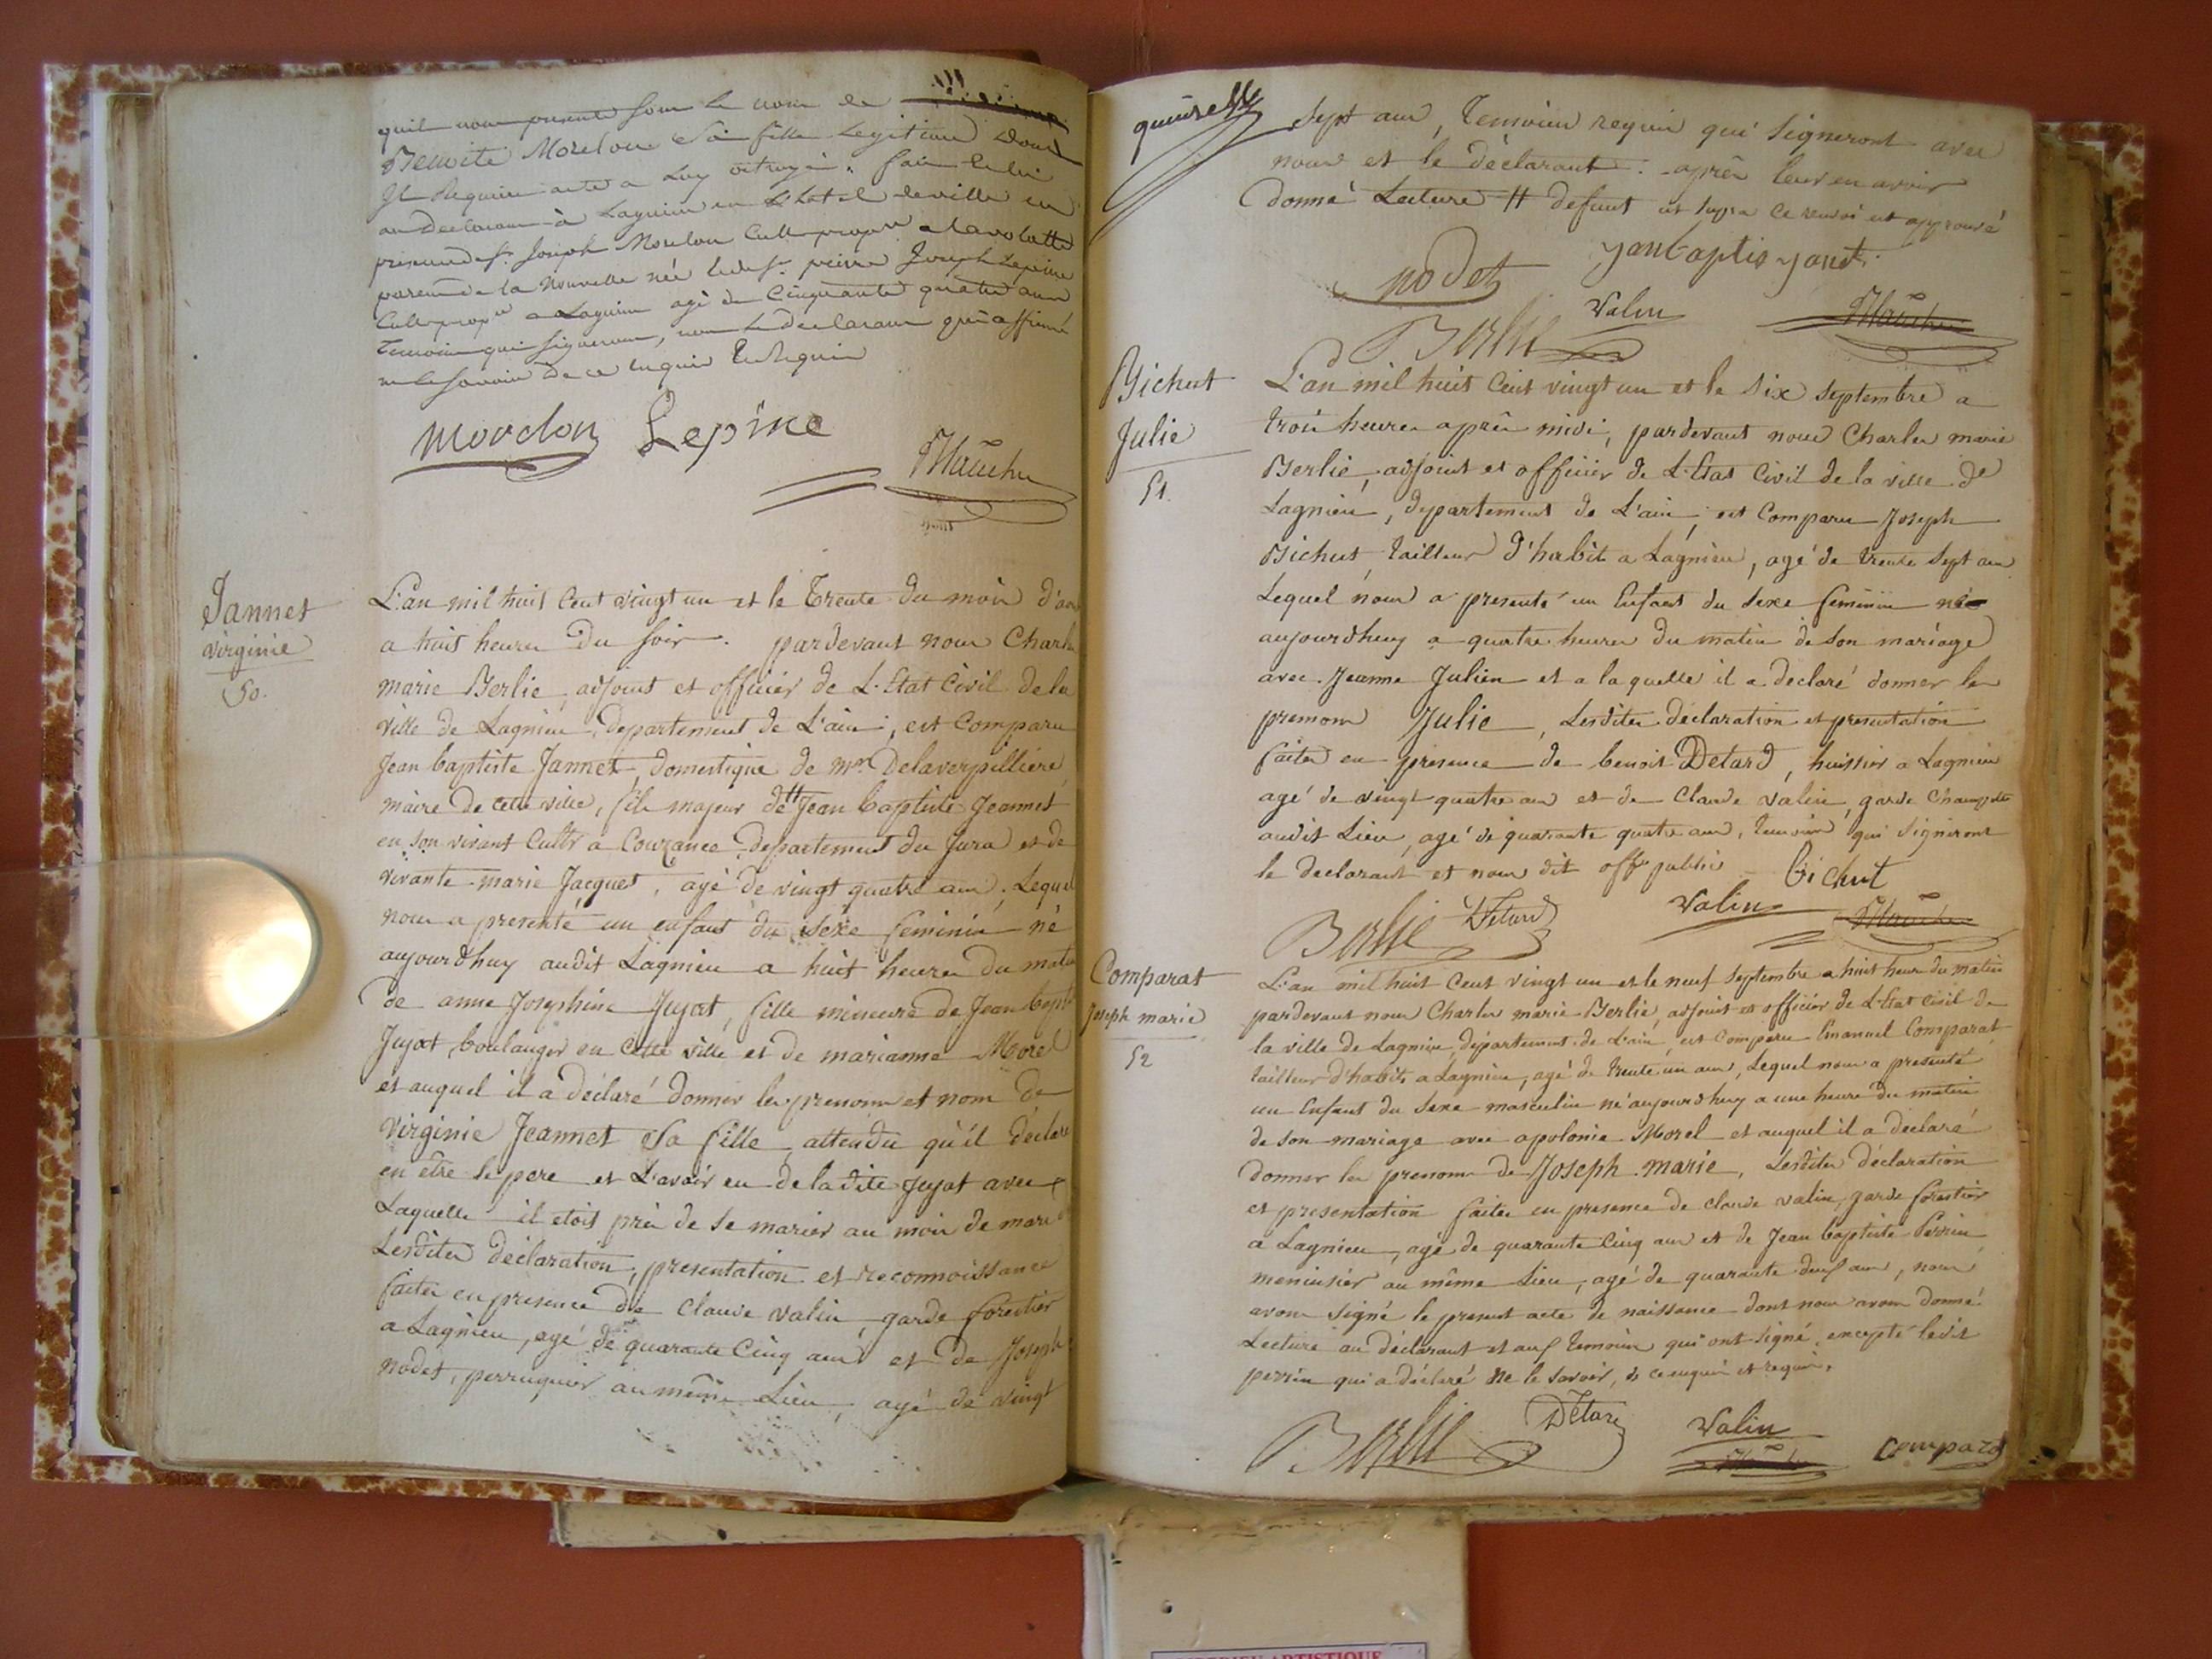 quil nous presente sous le nom de
Benoite Morelon sa fille Legitime dont
Il Requiere acte a Luy octroyé. fait lu lui
au declarant à Lagnieu en l'hotel de ville en
presence de Sr. Joseph Morelon Cultr propre a
parent de la nouvelle née et de Sr. pierre Joseph Lepine
Cultr propre a Lagnieu agé de Cinquante quatre ans
Temoins qui signeront, non le declarant qui a affirmé
ne le savoir de ce Enquis Et Requis
Morelon Lepine
Jannet
virginie
50.
L'an mil huit Cent vingt un et le Trente du mois d'aout
a huit heures du soir. pardevant nous Charles
marie Berlie, adjoint et officier de L'Etat Civil de la
ville de Lagnieu, departement de L'ain, est Comparu
Jean baptiste Jannet, domestique de mr. Delaverpilliere
maire de cette ville, fils majeur de # Jean baptiste Jeannet
en son vivant Cultr a Courance, departement du Jura et de
vivante marie Jacquet, agé de vingt quatre ans, Lequel
nous a presenté un enfant du sexe feminin né
aujourdhuy audit Lagnieu a huit heures du matin
de anne Josephine Jujat, fille mineure de Jean bapte
Jujat boulanger en Cette ville et de marianne Morel
et auquel il a déclaré donner les prenoms et nom de
Virginie Jeannet Sa fille, attendu qu'il declare
en être le pere et L'avoir eu de la dite Jujat avec
Laquelle il etoit près de se marier au mois de mars
Lesdites déclaration, presentation et reconnoissance
faites en presence de Claude Valin, garde forestier
a Lagnieu, agé de quarante Cinq ans et de Joseph
nodet, perruquier au même Lieu, agé de vingt
Sept ans, Temoins requis qui Signeront avec
nous et le déclarant: après leur en avoir
donné Lecture # defunt
nodet yanbaptis yanet
Berlie Valin
Bichut
Julie
51.
L'an mil huit Cent vingt un et le Six Septembre a
trois heures après midi, pardevant nous Charles marie
Berlie, adjoint et officier de L'Etat Civil de la ville de
Lagnieu, departement de L'ain, est Comparu Joseph
Bichut, tailleur d'habit a Lagnieu, agé de trente Sept ans
Lequel nous a presenté un Enfant du Sexe feminin né
aujourdhuy a quatre heures du matin de son mariage
avec Jeanne Julien et a laquelle il a declaré donner le
prenom Julie, Lesdites declaration et presentation
faites en presence de benoit Detard, huissier a Lagnieu
agé de vingt quatre ans et de Claude Valin, garde Champetre
audit Lieu, agé de quarante quatre ans, temoins qui Signeront
le declarant et nous dit offr public bichut
Berlie Detard Valin
Comparat
Joseph marie
52
L'an mil huit Cent vingt un et le neuf Septembre a huit heures du matin
pardevant nous Charles marie Berlie, adjoint et officier de L'Etat Civil de
la ville de Lagnieu, departement de L'ain, est Comparu Emanuel Comparat,
tailleur d'habits a Lagnieu, agé de trente un ans, Lequel nous a presenté
un Enfant du Sexe masculin né aujourdhuy a une heure du matin
de son mariage avec apolonie Morel et auquel il a declaré
donner les prenoms de Joseph marie, Lesdites déclaration
et presentation faites en presence de claude valin, garde forestier
a Lagnieu, agé de quarante Cinq ans et de Jean baptiste Perrin
menuisier au même Lieu, agé de quarante deux ans, nous
avons Signé le present acte de naissance dont nous avons donné
Lecture au déclarant et aux temoins qui ont Signé, excepté ledit
perrin qui a déclaré ne le savoir, de ce enquis et requis.
Berlie Detard Valin Comparat